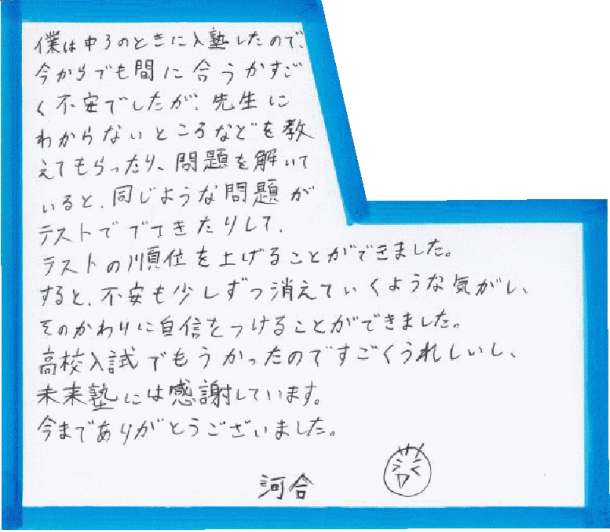 僕は中3のときに入塾したので、
今からでも間に合うかすご
く不安でしたが、先生に
わからないところなどを教
えてもらったり、問題を解いて
いると、同じような問題が
テストででてきたりして、
テストの順位を上げることができました。
すると、不安も少しずつ消えていくような気がし、
そのかわりに自信をつけることができました。
高校入試でもうかったのですごくうれしいし、
未来塾には感謝しています。
今までありがとうございました。
河合